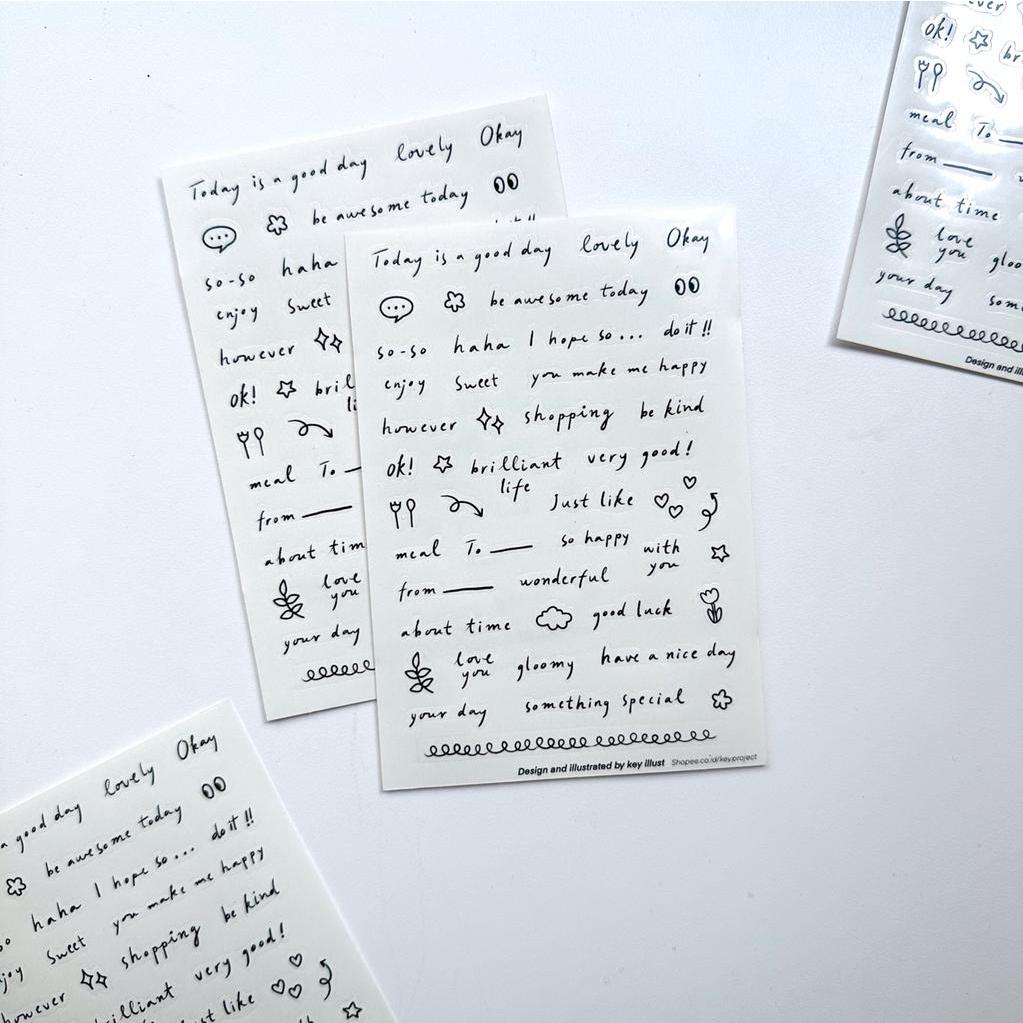 Today is a good day lovely Okay
be awesome today
so-so haha
enjoy sweet
however
ok!
meal To
from
about tim
love
you
your day
Today is a good day lovely Okay
be awesome today
so-so haha I hope so... do it!!
enjoy sweet you make me happy
however shopping be kind
ok! brilliant very good!
life
Just like
meal To so happy with
you
from wonderful
about time good luck
love
you gloomy have a nice day
your day something special
Design and illustrated by key illust Shopee.co.id/keyproject
ok!
meal To
from
about time
love
you
your day
Design and
a good day lovely Okay
be awesome today
haha I hope so... do it!!
sweet you make me happy
however shopping be kind
very good!
like